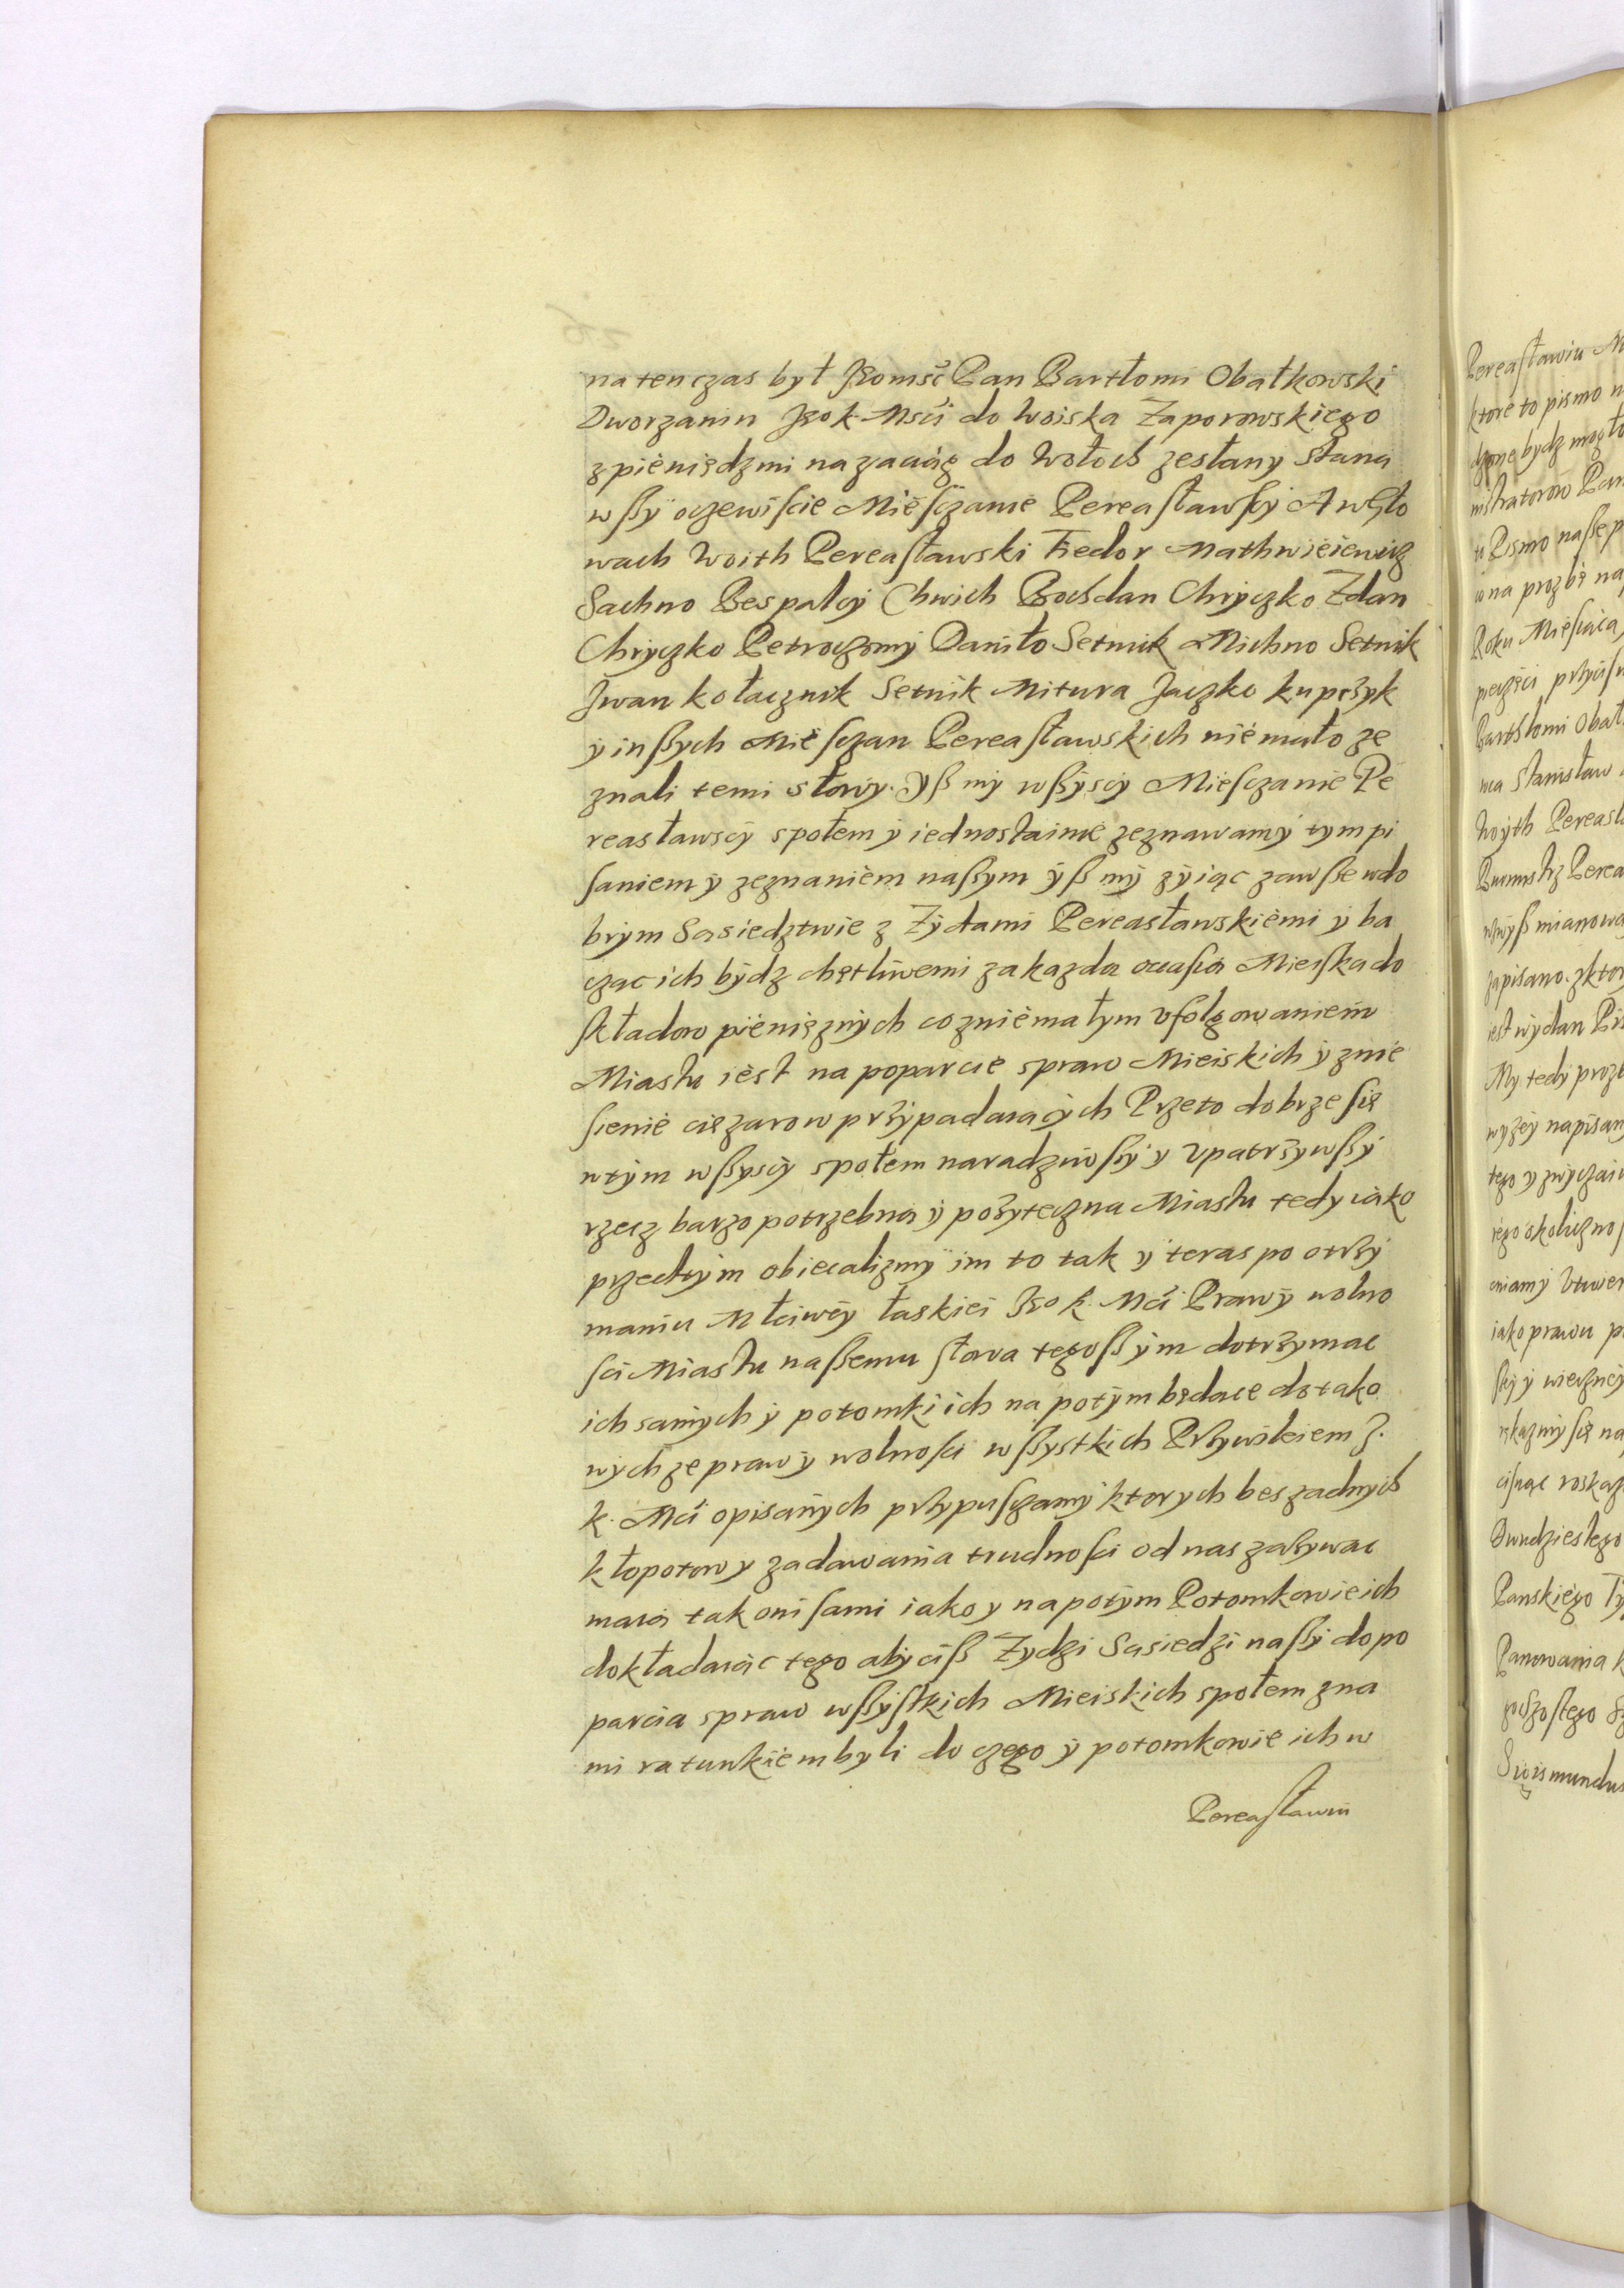 na ten czas był Je⁰ mść Pan Bartłomi Obałkowski
Dworzanin Je⁰ k. Mśći do Woiska Zaporowskiego
z pieniędzmi na zaciąg do Wołoch zesłany Stana
wßÿ oczewiſcie Mieſczanie Pereaſławſcÿ A w Gło
wach Woith Pereaſławski Fiedor Mathwieiewicz
Sachno Bespalcÿ Chwich Bochdan Chryczko Zdan
Chryczko Daniło Setnik Michno Setnik
Jwan kołacznik Setnik Mitura Jaczko kuprzyk
ÿ inßych Mieſczan Pereaſławskich niemało ze
znali temi słowÿ. Yß mÿ wßÿscÿ Mieſczanie Pe
reasławscÿ społem ÿ iednostainie zeznawamÿ tym pi
ſaniem ÿ zeznaniem naßym ÿß mÿ zÿiąc zawſße w do
brÿm Sąsiedztwie z Zÿdami Pereasławskiemi ÿ ba
cząc ich bÿdz chętliwemi za kazdą occaſią Mieiſką do
ſkładow pieniężnÿch co z niemałym vfolgowaniem
Miastu iest na poparcie spraw Mieiskich ÿ znie
ſienie ciężarow przÿpadaiącÿch Przeto dobrze ſię
w tÿm wßyscÿ społem naradziwßÿ ÿ vpatrzÿwßÿ
rzecz barzo potrzebną ÿ pożyteczną Miastu tedy iako
przedtÿm obiecalizmÿ im to tak ÿ teras po otrzÿ
maniu Młciwéy łaskiei Je⁰ k. Mći Praw ÿ wolno
ſci Miastu naßemu ſłowa tegoßÿm dotrzymac
ich samÿch ÿ potomki ich na potÿm będące do tako
wÿch ze praw ÿ wolnoſci wßystkich Przywileiem J.
k. Mći opisanÿch przypuſczamÿ ktorych bes zadnÿch
kłopotow y zadawania trudnoſci od nas zażywac
maią tak oni ſami iako y na potÿm Potomkowie ich
dokładaiąc tego abÿ ciß Zydzi Sąsiedzi naßÿ do po
parcia spraw wßÿſtkich Mieiskich społem z na
mi ratunkiem byli do czego ÿ potomkowie ich w
Pereaſławiu
Pereaſławiu
ktore to pismo
bydz mogło
u Pismo naße
na prozbę na
Roku Mieſiąca
Bartłomi Obał
Stanisław
Woÿth Pereasł
Burmistrz Perea
wÿß mianowa
zapisano. z ktor
iest wÿdan
My tedÿ prozb
wyżéy napisan
tego ÿ zwyczaiu
iego okolicznoſ
iako prawu
ſkÿ ÿ wiecznéÿ
roskaz
Dwudziestego
Panskiego
Panowania
Sigismundus